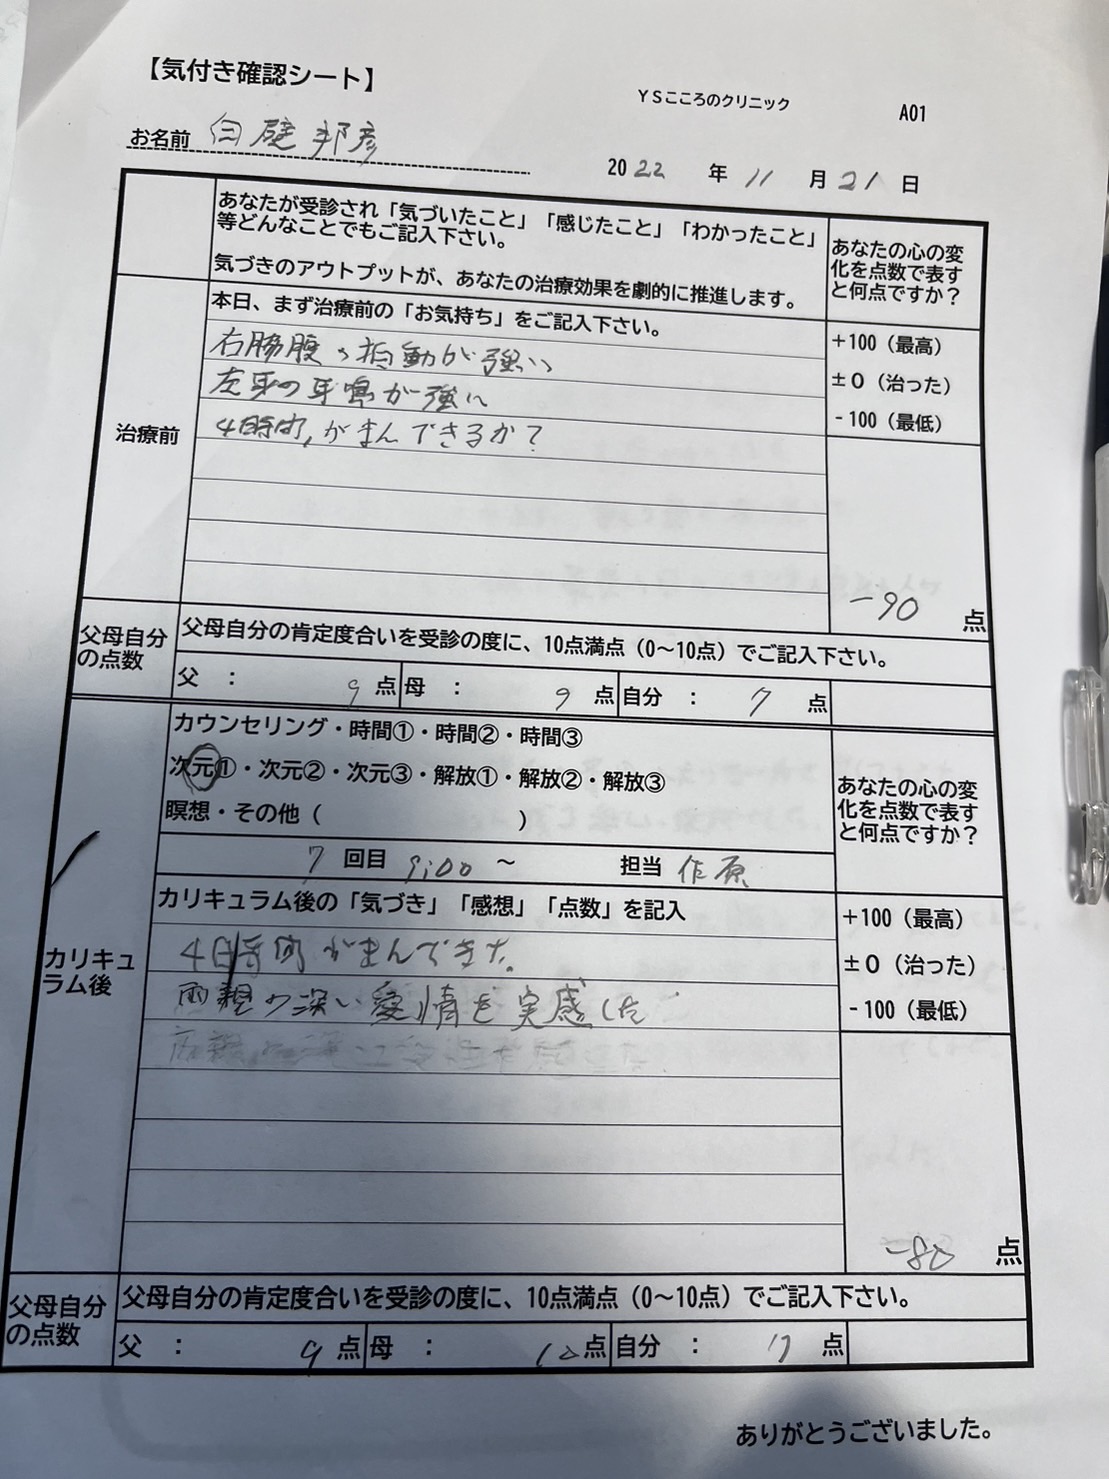 【気付き確認シート】
YSこころのクリニック
A01
お名前 白壁邦彦
2022年11月21日
あなたが受診され「気づいたこと」「感じたこと」「わかったこと」
等どんなことでもご記入下さい。
気づきのアウトプットが、あなたの治療効果を劇的に推進します。
あなたの心の変
化を点数で表す
と何点ですか？
治療前
本日、まず治療前の「お気持ち」をご記入下さい。
右脇腹の拍動が強い
左耳の耳鳴が強い
4時間、がまんできるか？
+100（最高）
±0（治った）
-100（最低）
-90 点
父母自分
の点数
父母自分の肯定度合いを受診の度に、10点満点（0～10点）でご記入下さい。
父 : 9 点 母 : 9 点 自分 : 7 点
カリキュ
ラム後
カウンセリング・時間①・時間②・時間③
次元①・次元②・次元③・解放①・解放②・解放③
瞑想・その他（ ）
7 回目 9:00 ～ 担当 作原
あなたの心の変
化を点数で表す
と何点ですか？
カリキュラム後の「気づき」「感想」「点数」を記入
4時間がまんできた。
両親の深い愛情を実感した
+100（最高）
±0（治った）
-100（最低）
-80 点
父母自分
の点数
父母自分の肯定度合いを受診の度に、10点満点（0～10点）でご記入下さい。
父 : 9 点 母 : 10 点 自分 : 7 点
ありがとうございました。